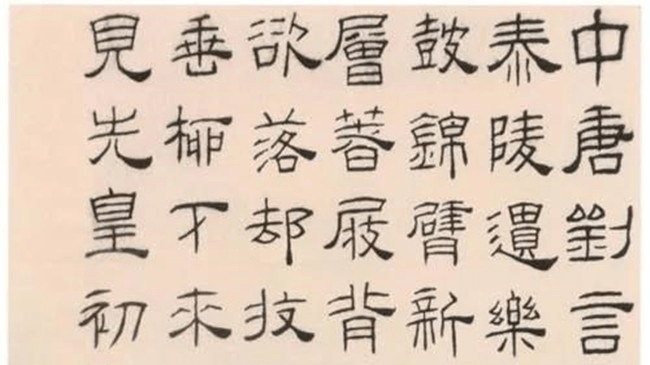 中唐劉言
泰陵遺樂
鼓錦臂新
層著屐背
欲落却收
垂柳下來
見先皇初